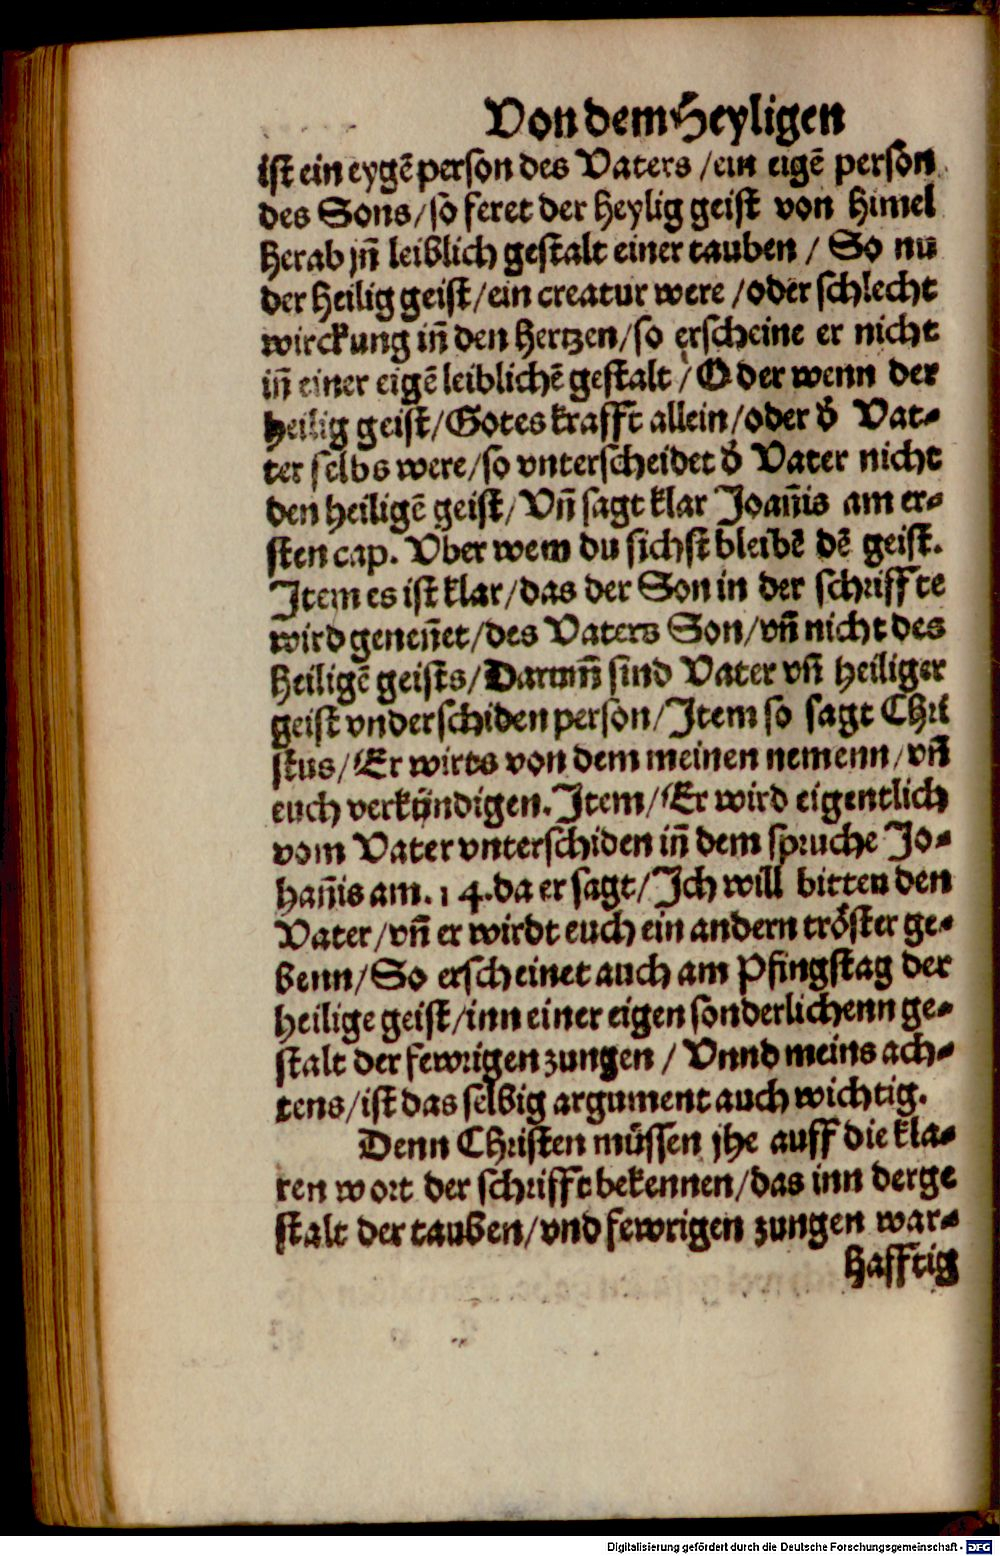 Von dem Heyligen
ist ein eygē person des Vaters / ein eigē person
des Sons / so feret der heylig geist von himel
herab jñ leiblich gestalt einer tauben / So nu
der heilig geist / ein creatur were / oder schlecht
wirckung iñ den hertzen / so erscheine er nicht
iñ einer eigē leiblichē gestalt / Oder wenn der
heilig geist / Gotes krafft allein / oder d̕ Vat-
ter selbs were / so vnterscheidet d̕ Vater nicht
den heiligē geist / Vñ sagt klar Joañis am er-
sten cap. Vber wem du sichst bleibē dē geist.
Item es ist klar / das der Son in der schriffte
wird geneñet / des Vaters Son / vñ nicht des
heiligē geists / Darumñ sind Vater vñ heiliger
geist vnderschiden person / Item so sagt Chri
stus / Er wirts von dem meinen nemenn / vñ
euch verkündigen. Item / Er wird eigentlich
vom Vater vnterschiden iñ dem spruche Jo-
hañis am. 14. da er sagt / Ich will bitten den
Vater / vñ er wirdt euch ein andern tröster ge-
benn / So erscheinet auch am Pfingstag der
heilige geist / inn einer eigen sonderlichenn ge-
stalt der fewrigen zungen / Vnnd meins ach-
tens / ist das selbig argument auch wichtig.
Denn Christen müssen jhe auff die kla-
ren wort der schrifft bekennen / das inn der ge
stalt der tauben / vnd fewrigen zungen war-
hafftig
Digitalisierung gefördert durch die Deutsche Forschungsgemeinschaft - DFG